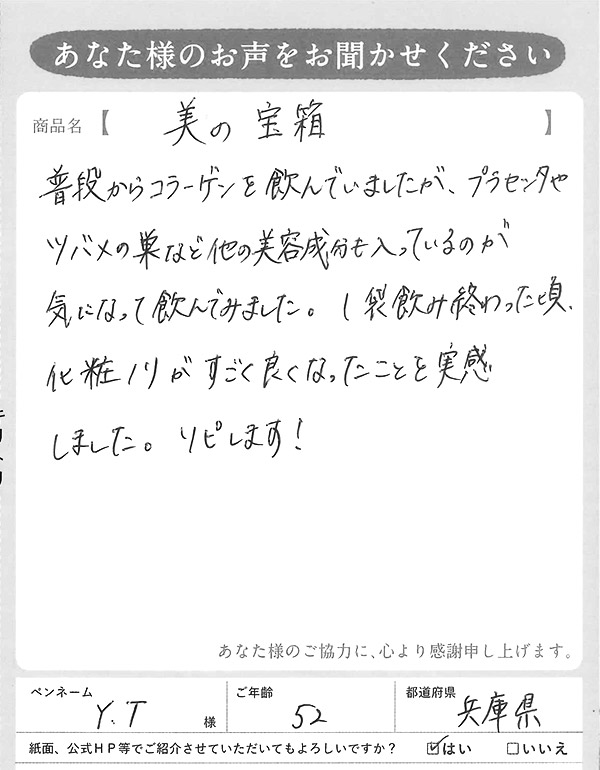 あなた様のお声をお聞かせください
商品名【 美の宝箱 】
普段からコラーゲンを飲んでいましたが、プラセンタや
ツバメの巣など他の美容成分も入っているのが
気になって飲んでみました。1袋飲み終わった頃、
化粧ノリがすごく良くなったことを実感
しました。リピします!
あなた様のご協力に、心より感謝申し上げます。
ペンネーム Y.T 様 ご年齢 52 都道府県 兵庫県
紙面、公式HP等でご紹介させていただいてもよろしいですか? ☑はい □いいえ